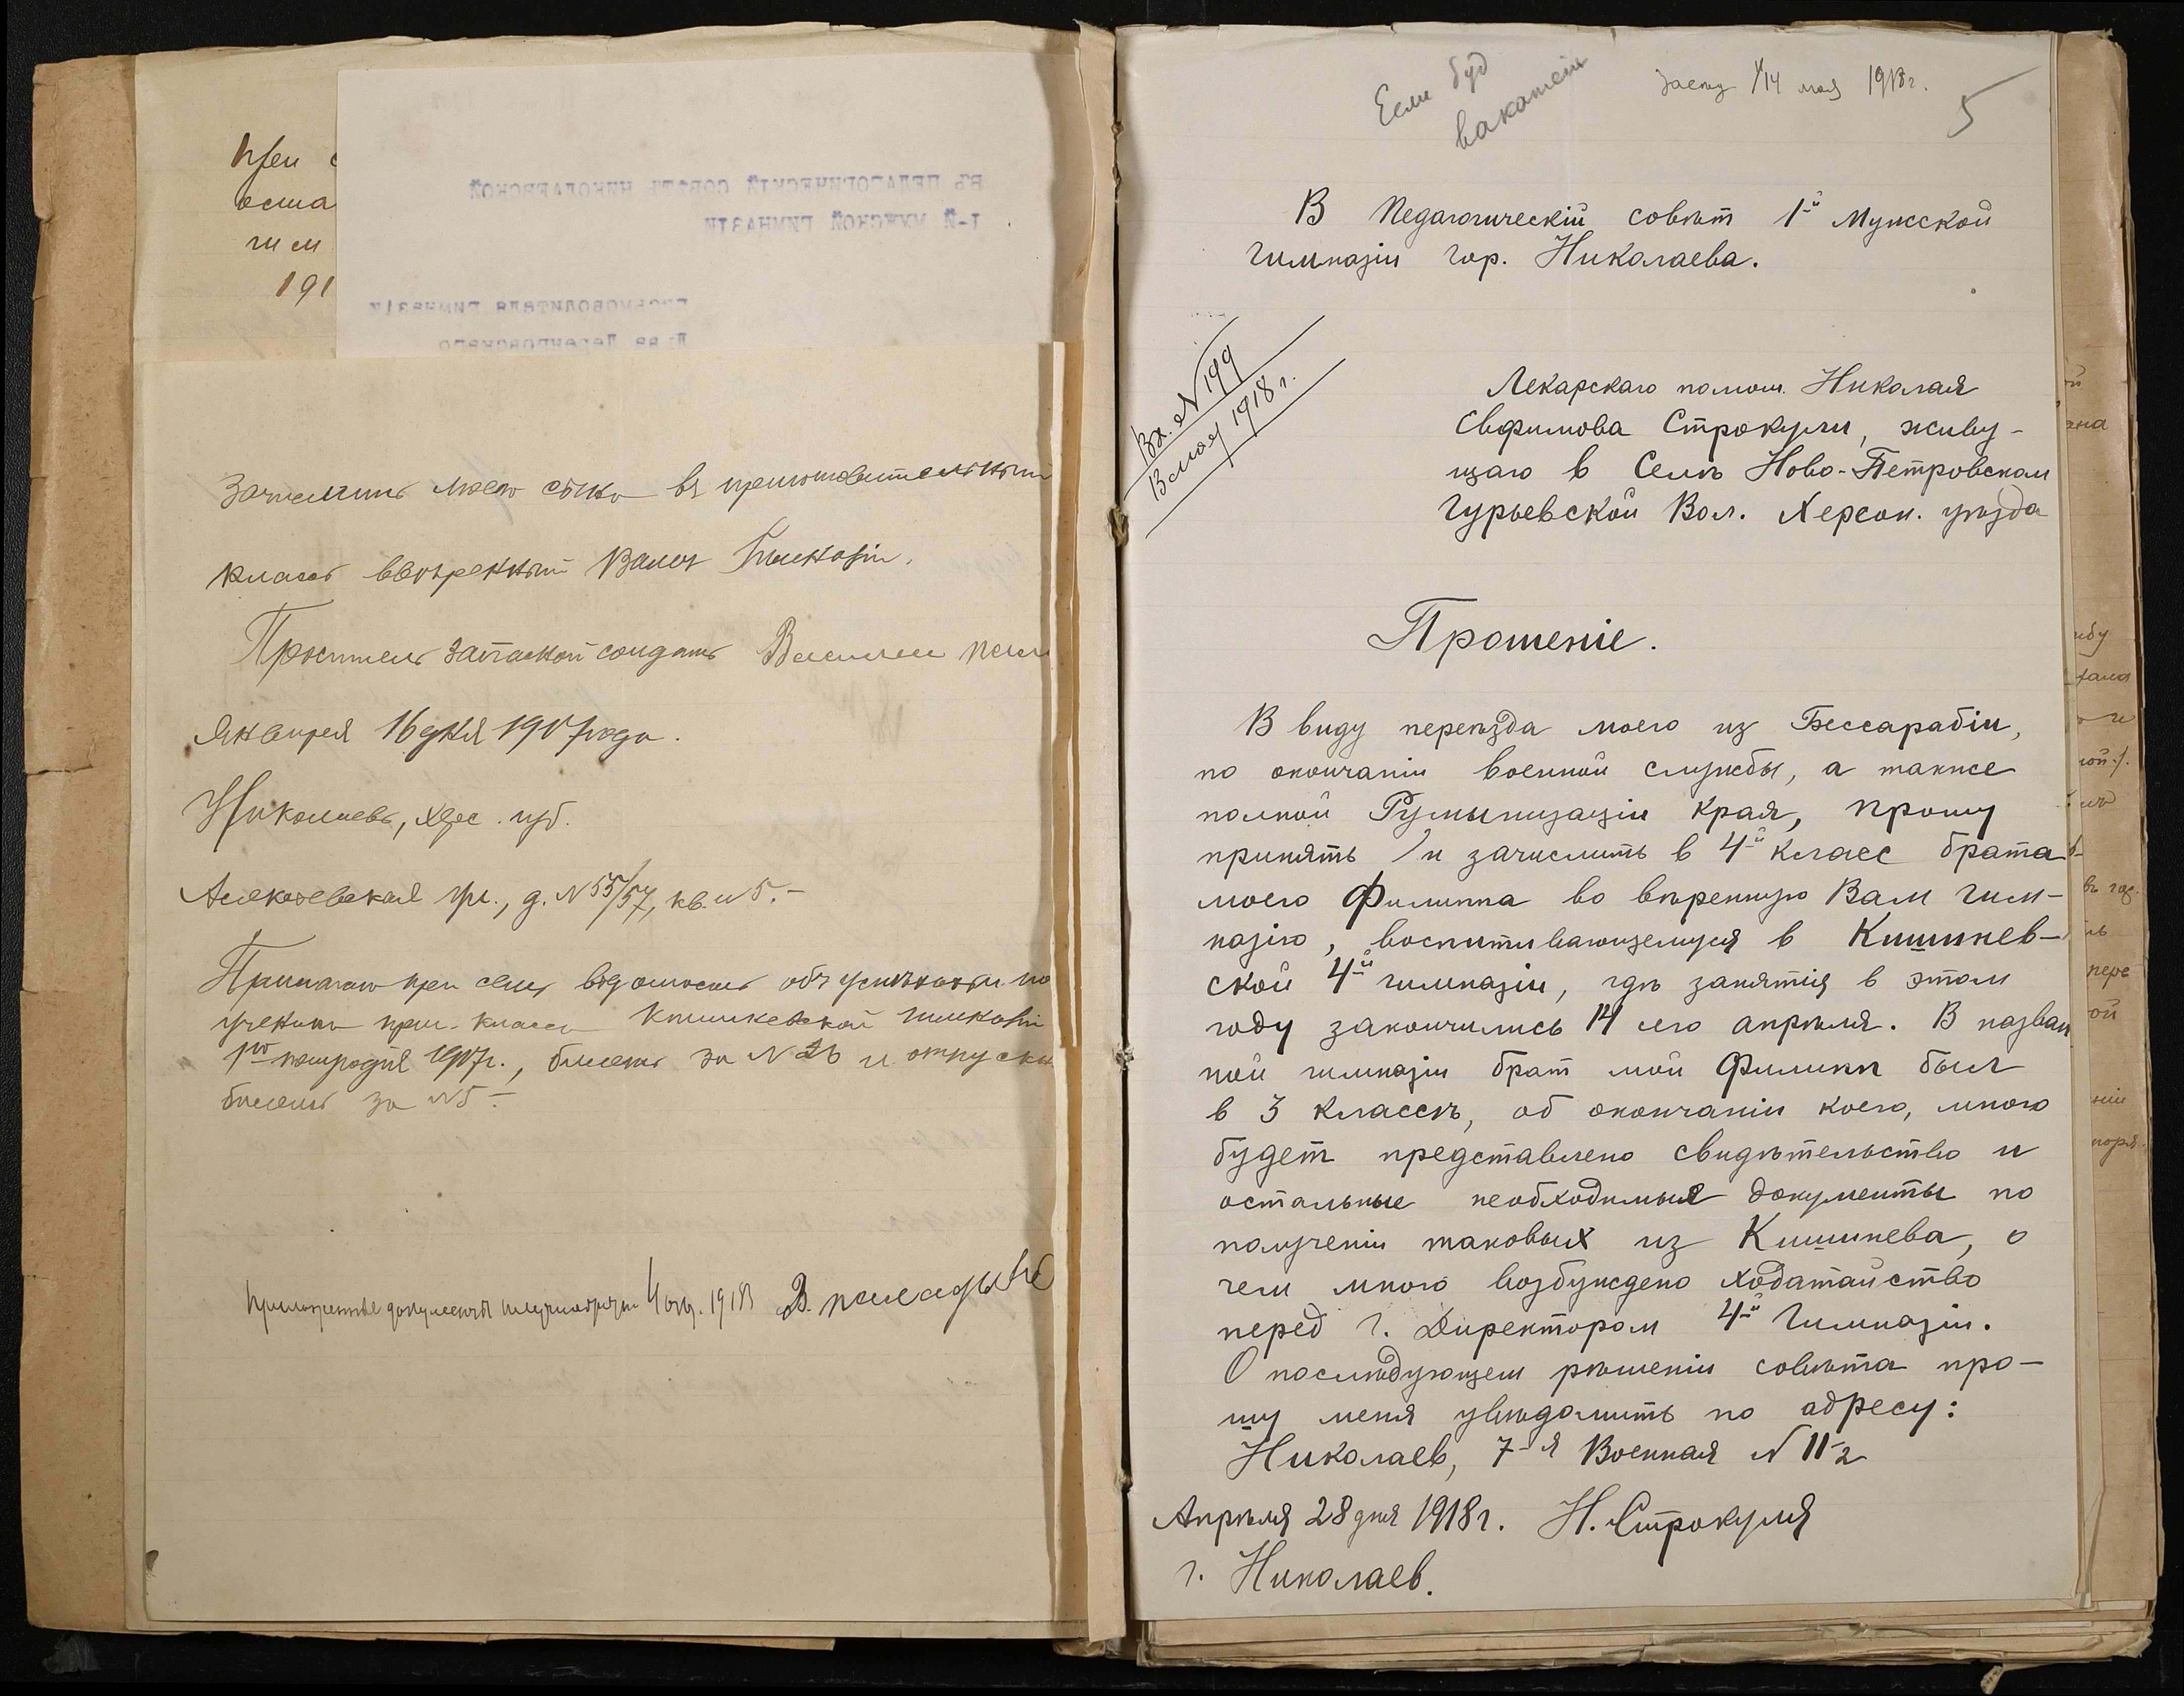 При
191
зачислить моего сына въ приготовительный
классъ ввѣренной Вамъ Гимназіи.
Проситель запасной солдатъ Василий
Января 16 дня 1917 года.
Николаевъ, Херс. губ.
ул., д. N 55/57, кв. N 5.-
Прилагаю при семъ вѣдомость объ успѣхахъ
ученика приг. класса Кишиневской гимназіи
1го полугодія 1917г., билетъ за N 26 и отпускн
билетъ за N5.-
Приложенные документы получилъ обратно 4 1918
ВЪ ПЕДАГОГИЧЕСКІЙ СОВѢТЪ НИКОЛАЕВСКОЙ
1-Й МУЖСКОЙ ГИМНАЗІИ
письмоводителя гимназіи
Если буд
вакансіи
14 мая 1918г.
5
В Педагогическій совѣт 1-й Мужской
гимназіи гор. Николаева.
Вх. N 199
мая 1918 г.
Лекарскаго помощ. Николая
Евфимова Строкули, живу-
щаго в Селѣ Ново-Петровском
Гурьевской Вол. Херсон. уѣзда
Прошеніе.
В виду переѣзда моего из Бессарабіи,
по окончаніи военной службы, а также
полной Румынизаціи края, прошу
принять и зачислить в 4-й класс брата
моего Филиппа во ввѣренную Вам гим-
назію, воспитывающемуся в Кишинев-
ской 4-й гимназіи, гдѣ занятія в этом
году закончились 14 сего апрѣля. В назван
ной гимназіи брат мой Филипп был
в 3 классѣ, об окончаніи коего, мною
будет представлено свидѣтельство и
остальные необходимые документы по
полученіи таковых из Кишинева, о
чем мною возбуждено ходатайство
перед г. Директором 4-й Гимназіи.
О послѣдующем рѣшеніи совѣта про-
шу меня увѣдомить по адресу:
Николаев, 7-я Военная N 11-2
Апрѣля 28 дня 1918г. Н. Строкуля
г. Николаев.